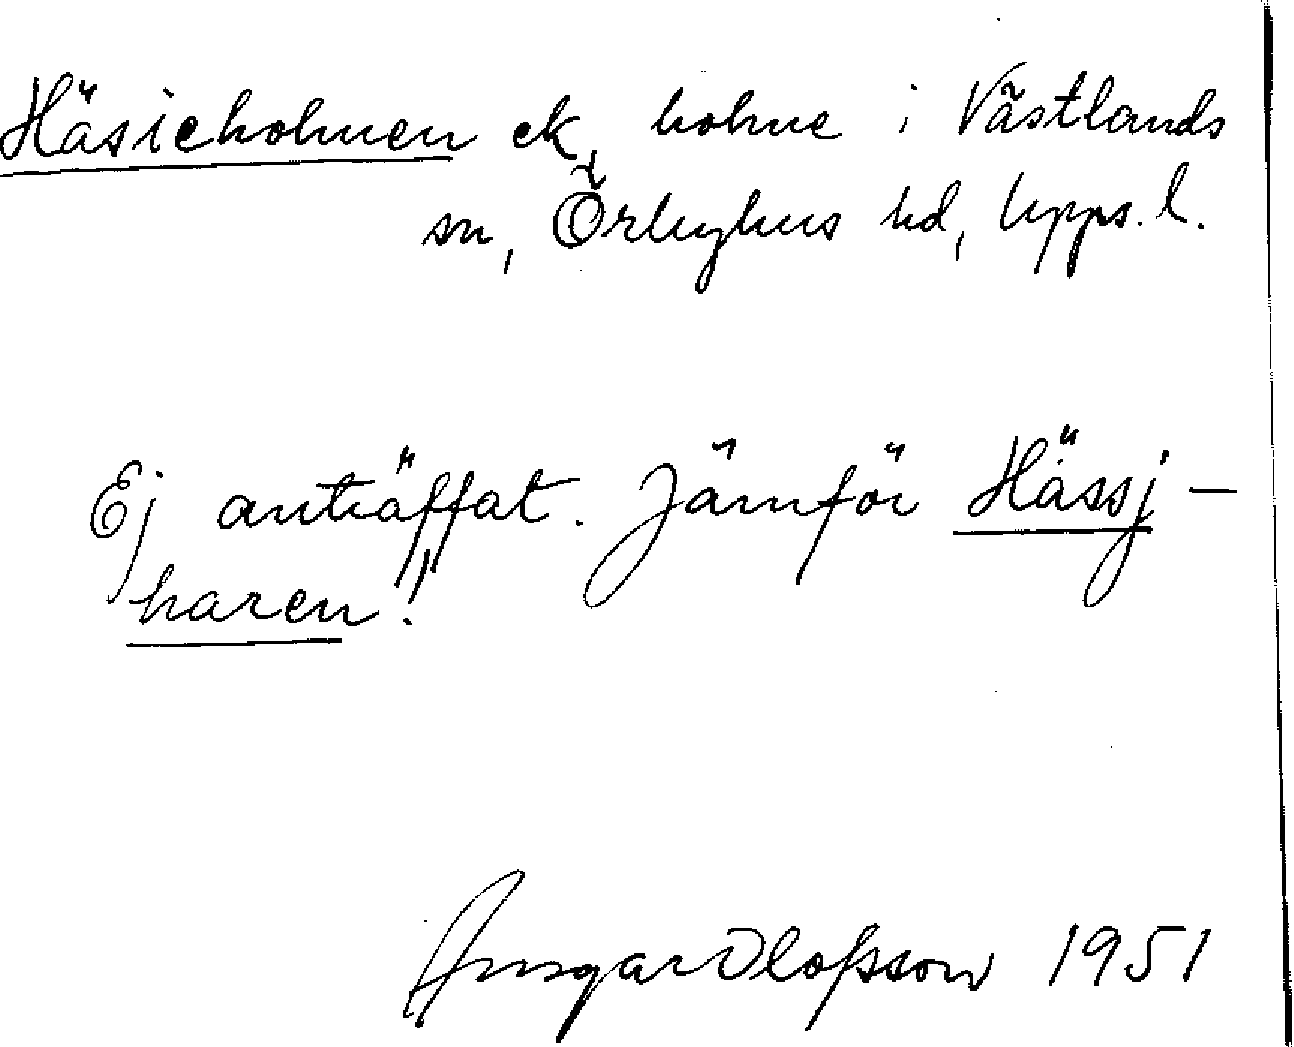 Häsieholmen ek, holme i Västlands
sn, Örbyhus hd, Upps. l.
Ej anträffat. Jämför Hässj-
haren!
Ansgar Olofsson 1951